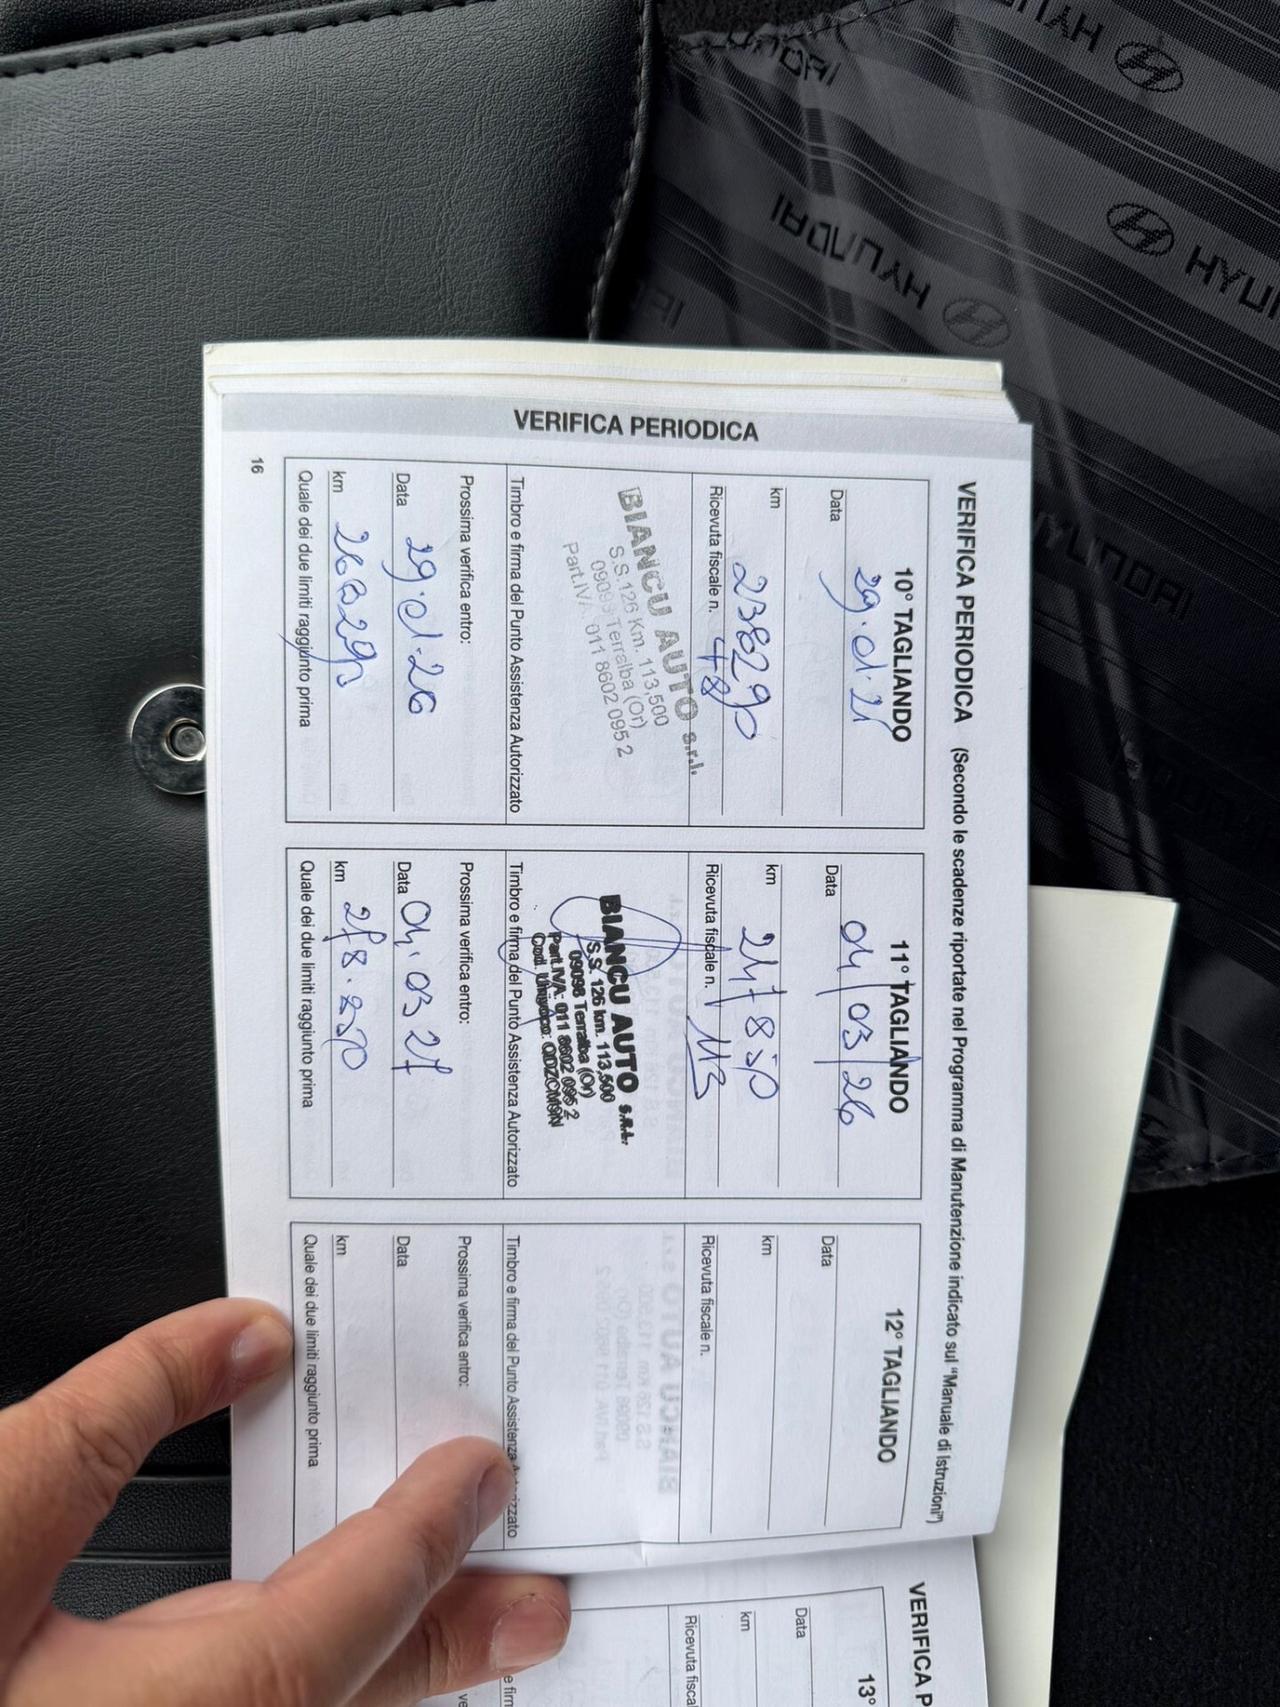 HYUNDAI
HYUNDAI
HYUNDAI
HYUNDAI
HYUNDAI
VERIFICA PERIODICA
VERIFICA PERIODICA (Secondo le scadenze riportate nel Programma di Manutenzione indicato sul "Manuale di Istruzioni")
10° TAGLIANDO
Data
km 238290
Ricevuta fiscale n. 48
BIANCU AUTO s.r.l.
S.S.126 Km. 113,500
09098 Terralba (Or)
Part.IVA 011 8602 095 2
Timbro e firma del Punto Assistenza Autorizzato
Prossima verifica entro:
Data 29.01.26
km 268290
Quale dei due limiti raggiunto prima
11° TAGLIANDO
Data 04/03/26
km 247850
Ricevuta fiscale n. 113
BIANCU AUTO S.R.L.
S.S. 126 km. 113,500
09098 Terralba (Or)
Part.IVA: 011 8602 095 2
Cod. Univoco:
Timbro e firma del Punto Assistenza Autorizzato
Prossima verifica entro:
Data 04.03 27
km 278.850
Quale dei due limiti raggiunto prima
12° TAGLIANDO
Data
km
Ricevuta fiscale n.
Timbro e firma del Punto Assistenza Autorizzato
Prossima verifica entro:
Data
km
Quale dei due limiti raggiunto prima
16
VERIFICA P
13°
Data
km
Ricevuta fisca